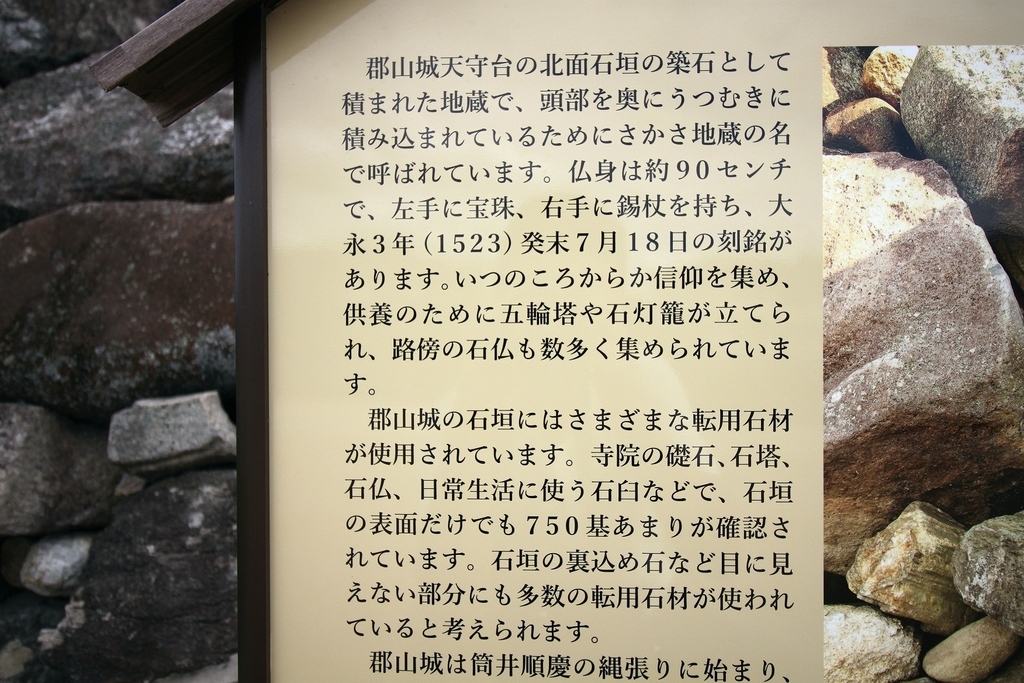 郡山城天守台の北面石垣の築石として
積まれた地蔵で、頭部を奥にうつむきに
積み込まれているためにさかさ地蔵の名
で呼ばれています。仏身は約90センチ
で、左手に宝珠、右手に錫杖を持ち、大
永3年(1523)癸末7月18日の刻銘が
あります。いつのころからか信仰を集め、
供養のために五輪塔や石灯籠が立てら
れ、路傍の石仏も数多く集められていま
す。
郡山城の石垣にはさまざまな転用石材
が使用されています。寺院の礎石、石塔、
石仏、日常生活に使う石臼などで、石垣
の表面だけでも750基あまりが確認さ
れています。石垣の裏込め石など目に見
えない部分にも多数の転用石材が使われ
ていると考えられます。
郡山城は筒井順慶の縄張りに始まり、